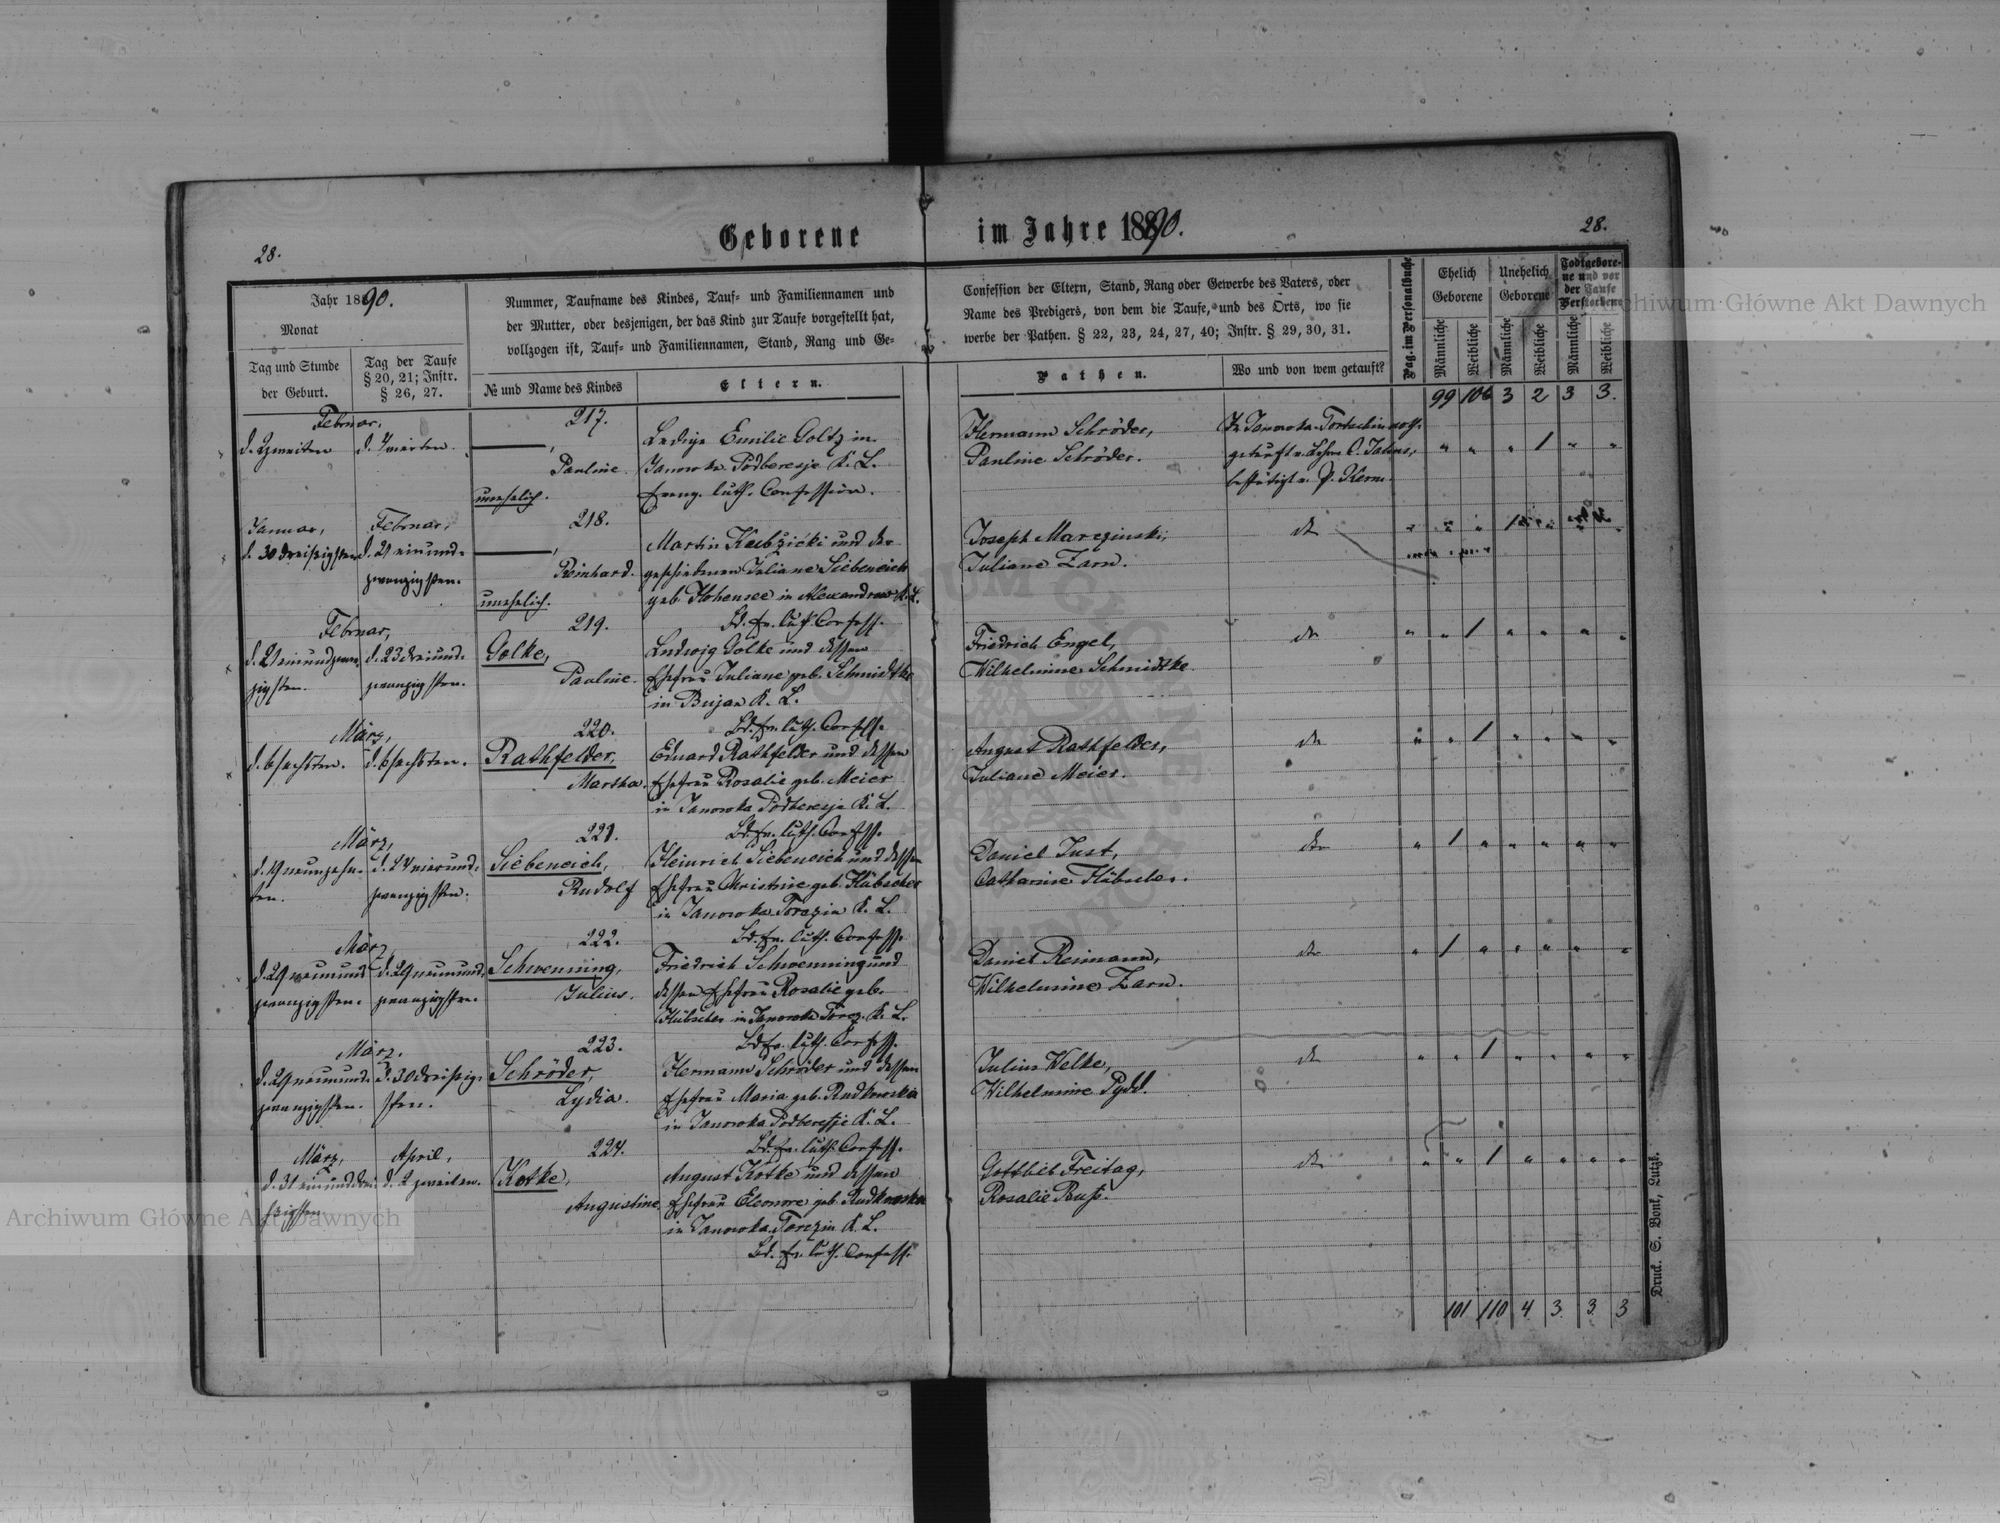 28.
Geborene
im Jahre 1890.
28.
Jahr 1890.
Monat
Tag und Stunde
der Geburt.
Tag der Taufe
§ 20, 21; Instr.
§ 26, 27.
Nummer, Taufname des Kindes, Tauf- und Familiennamen und
der Mutter, oder desjenigen, der das Kind zur Taufe vorgestellt hat,
vollzogen ist, Tauf- und Familiennamen, Stand, Rang und Ge-
№ und Name des Kindes
Eltern.
Confession der Eltern, Stand, Rang oder Gewerbe des Vaters, oder
Name des Predigers, von dem die Taufe, und des Orts, wo sie
werbe der Pathen. § 22, 23, 24, 27, 40; Instr. § 29, 30, 31.
Pathen.
Wo und von wem getauft?
Pag. im Personalbuche
Ehelich
Geborene
Unehelich
Geborene
Todtgebore-
ne und vor
der Taufe
Verstorbene
Männliche
Weibliche
Männliche
Weibliche
Männliche
Weibliche
99 106 3 2 3 3.
Februar,
d. 2 zweiten
d. 4 vierten
217.
Pauline
unehelich.
Ledige Emilie Goltz in
Janowka Podberesje K. L.
Evang. luth. Confession.
Hermann Schröder,
Pauline Schröder.
In Janowka-Tortschin
getauft v.
bestätigt v. P. Kerm
1
Januar,
d. 30 dreißigsten
Februar,
d. 21 einund-
zwanzigsten.
218.
Reinhard.
unehelich.
Martin Kubzicki und der
geschiedenen Juliane Siebeneich
geb. Hohensee in Alexandrow K. L.
Bd. Ev. luth. Confess.
Joseph Marczinski,
Juliane Zarn.
do
1
Februar,
d. 21 einundzwan
zigsten.
d. 23 dreiund-
zwanzigsten.
219.
Golke,
Pauline.
Ludwig Golke und dessen
Ehefrau Juliane geb. Schmidtke
in Bujan K. L.
Bd. Ev. luth. Confess.
Friedrich Engel,
Wilhelmine Schmidtke
do
1
März,
d. 6 sechsten.
d. 6 sechsten.
220.
Rathfelder,
Martha.
Eduard Rathfelder und dessen
Ehefrau Rosalie geb. Meier
in Janowka Podberesje K. L.
Bd. Ev. luth. Confess.
August Rathfelder,
Juliane Meier.
do
1
März,
d. 19 neunzehn-
ten.
d. 24 vierund-
zwanzigsten.
221.
Siebeneich,
Rudolf
Heinrich Siebeneich und dessen
Ehefrau Christine geb. Hübscher
in Janowka Torczin K. L.
Bd. Ev. luth. Confess.
Daniel Just,
Catharine Hübscher.
do
1
März
d. 29 neunund
zwanzigsten.
d. 29 neunund-
zwanzigsten.
222.
Schwenning,
Julius.
Friedrich Schwenning und
dessen Ehefrau Rosalie geb.
Hübscher in Janowka Torcz. K. L.
Bd. Ev. luth. Confess.
Daniel Reimann,
Wilhelmine Zarn.
do
1
März.
d. 29 neunund-
zwanzigsten.
d. 30 dreißig-
sten.
223.
Schröder,
Lydia.
Hermann Schröder und dessen
Ehefrau Maria geb. Rudkowska
in Janowka Podberesje K. L.
Bd. Ev. luth. Confess.
Julius Welke,
Wilhelmine Pydd.
do
1
März,
d. 31 einunddrei-
ßigsten
April,
d. 2 zweiten.
224.
Kotke,
Augustine.
August Kotke und dessen
Ehefrau Eleonore geb. Rudkowska
in Janowka Torczin K. L.
Bd. Ev. luth. Confess.
Gottlieb Freitag,
Rosalie Buß.
do
1
101 110 4 3 3 3
Druck. S. Bonk, Lutzk.
Archiwum Główne Akt Dawnych
Archiwum Główne Akt Dawnych